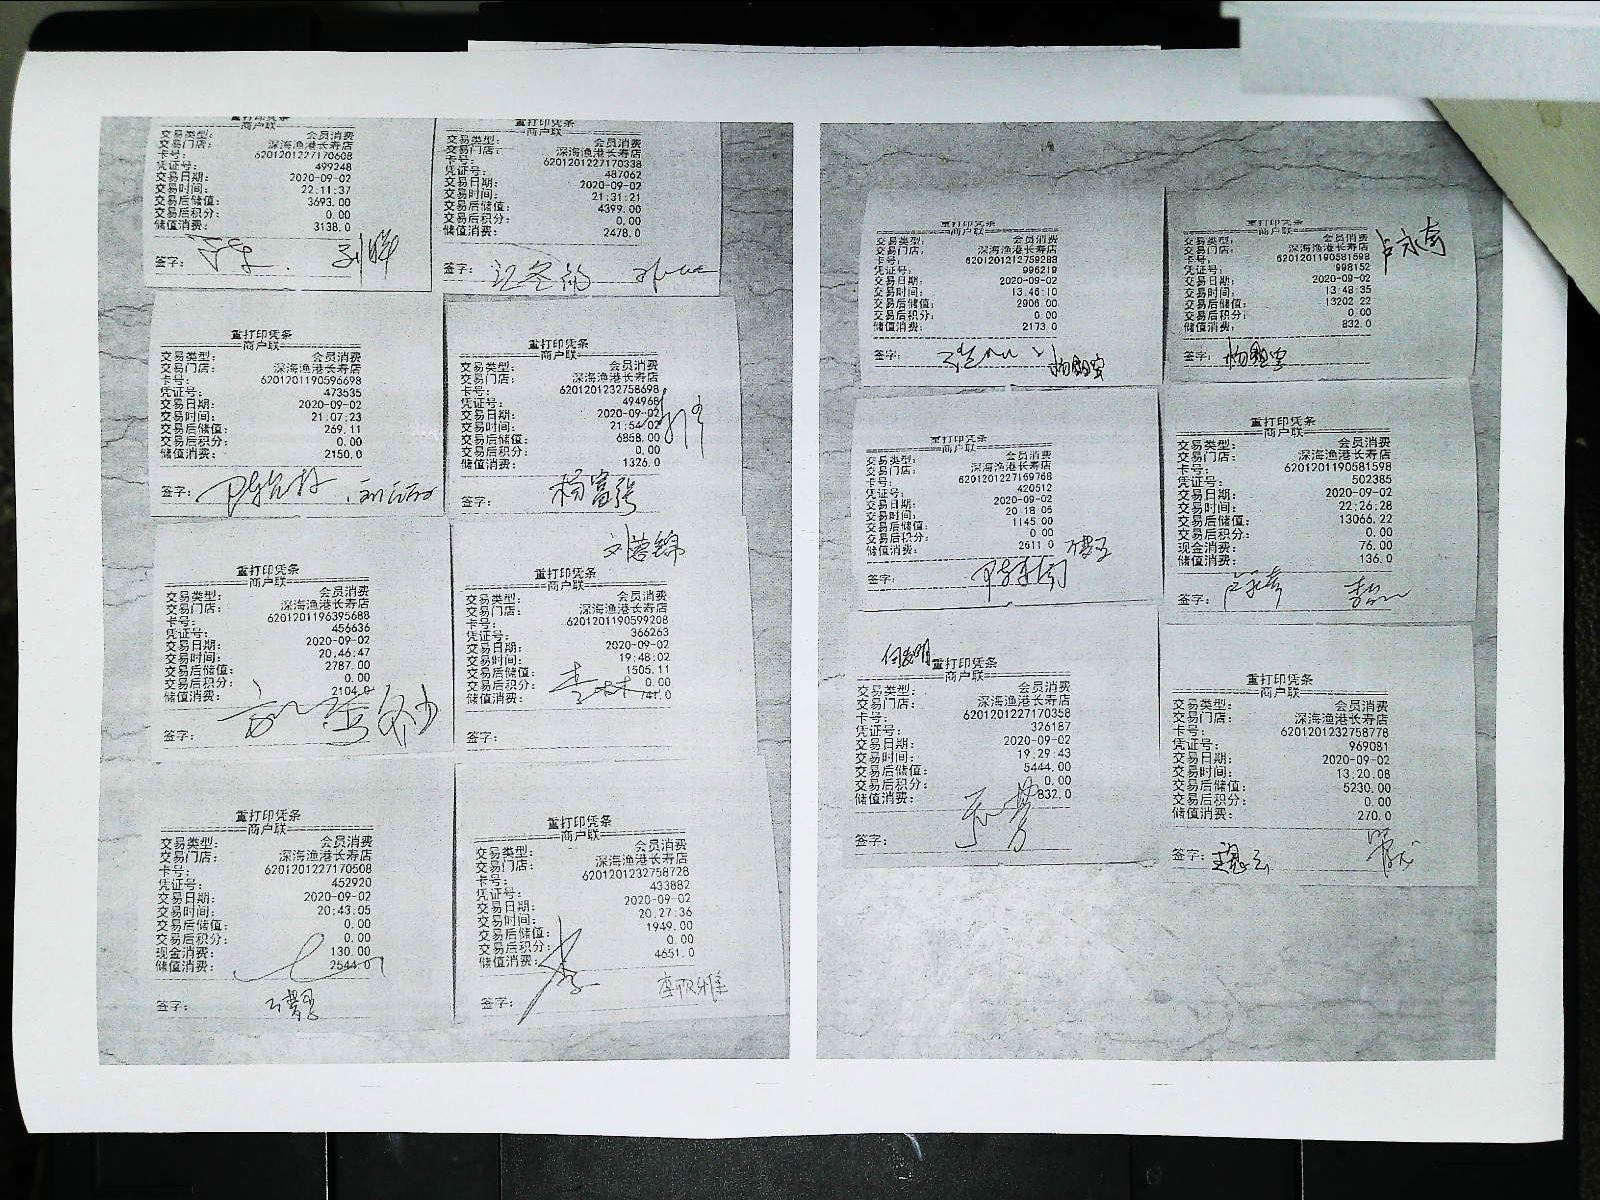 重打印凭条
商户联
交易类型: 会员消费
交易门店: 深海渔港长寿店
卡号: 6201201227170608
凭证号: 499248
交易日期: 2020-09-02
交易时间: 22:11:37
交易后储值: 3693.00
交易后积分: 0.00
储值消费: 3138.0
签字:
重打印凭条
商户联
交易类型: 会员消费
交易门店: 深海渔港长寿店
卡号: 6201201227170338
凭证号: 487062
交易日期: 2020-09-02
交易时间: 21:31:21
交易后储值: 4399.00
交易后积分: 0.00
储值消费: 2478.0
签字:
重打印凭条
商户联
交易类型: 会员消费
交易门店: 深海渔港长寿店
卡号: 6201201190596698
凭证号: 473535
交易日期: 2020-09-02
交易时间: 21:07:23
交易后储值: 269.11
交易后积分: 0.00
储值消费: 2150.0
签字:
重打印凭条
商户联
交易类型: 会员消费
交易门店: 深海渔港长寿店
卡号: 6201201232758698
凭证号: 494968
交易日期: 2020-09-02
交易时间: 21:54:02
交易后储值: 6858.00
交易后积分: 0.00
储值消费: 1326.0
签字: 杨富强
重打印凭条
商户联
交易类型: 会员消费
交易门店: 深海渔港长寿店
卡号: 6201201196395688
凭证号: 456636
交易日期: 2020-09-02
交易时间: 20:46:47
交易后储值: 2787.00
交易后积分: 0.00
储值消费: 2104.0
签字:
刘蓉锦
重打印凭条
商户联
交易类型: 会员消费
交易门店: 深海渔港长寿店
卡号: 6201201190599208
凭证号: 366263
交易日期: 2020-09-02
交易时间: 19:48:02
交易后储值: 1505.11
交易后积分: 0.00
储值消费: 741.0
签字:
重打印凭条
商户联
交易类型: 会员消费
交易门店: 深海渔港长寿店
卡号: 6201201227170508
凭证号: 452920
交易日期: 2020-09-02
交易时间: 20:43:05
交易后储值: 0.00
交易后积分: 0.00
现金消费: 130.00
储值消费: 2544.0
签字:
重打印凭条
商户联
交易类型: 会员消费
交易门店: 深海渔港长寿店
卡号: 6201201232758728
凭证号: 433882
交易日期: 2020-09-02
交易时间: 20:27:36
交易后储值: 1949.00
交易后积分: 0.00
储值消费: 4651.0
签字:
重打印凭条
商户联
交易类型: 会员消费
交易门店: 深海渔港长寿店
卡号: 6201201212759288
凭证号: 996219
交易日期: 2020-09-02
交易时间: 13:46:10
交易后储值: 2906.00
交易后积分: 0.00
储值消费: 2173.0
签字:
重打印凭条
商户联
交易类型: 会员消费
交易门店: 深海渔港长寿店
卡号: 6201201190581598
凭证号: 998152
交易日期: 2020-09-02
交易时间: 13:48:35
交易后储值: 13202.22
交易后积分: 0.00
储值消费: 832.0
签字:
重打印凭条
商户联
交易类型: 会员消费
交易门店: 深海渔港长寿店
卡号: 6201201227169768
凭证号: 420512
交易日期: 2020-09-02
交易时间: 20:18:06
交易后储值: 1145.00
交易后积分: 0.00
储值消费: 2611.0
签字:
重打印凭条
商户联
交易类型: 会员消费
交易门店: 深海渔港长寿店
卡号: 6201201190581598
凭证号: 502385
交易日期: 2020-09-02
交易时间: 22:26:28
交易后储值: 13066.22
交易后积分: 0.00
现金消费: 76.00
储值消费: 136.0
签字:
重打印凭条
商户联
交易类型: 会员消费
交易门店: 深海渔港长寿店
卡号: 6201201227170358
凭证号: 326187
交易日期: 2020-09-02
交易时间: 19:29:43
交易后储值: 5444.00
交易后积分: 0.00
储值消费: 832.0
签字:
重打印凭条
商户联
交易类型: 会员消费
交易门店: 深海渔港长寿店
卡号: 6201201232758778
凭证号: 969081
交易日期: 2020-09-02
交易时间: 13:20:08
交易后储值: 5230.00
交易后积分: 0.00
储值消费: 270.0
签字: